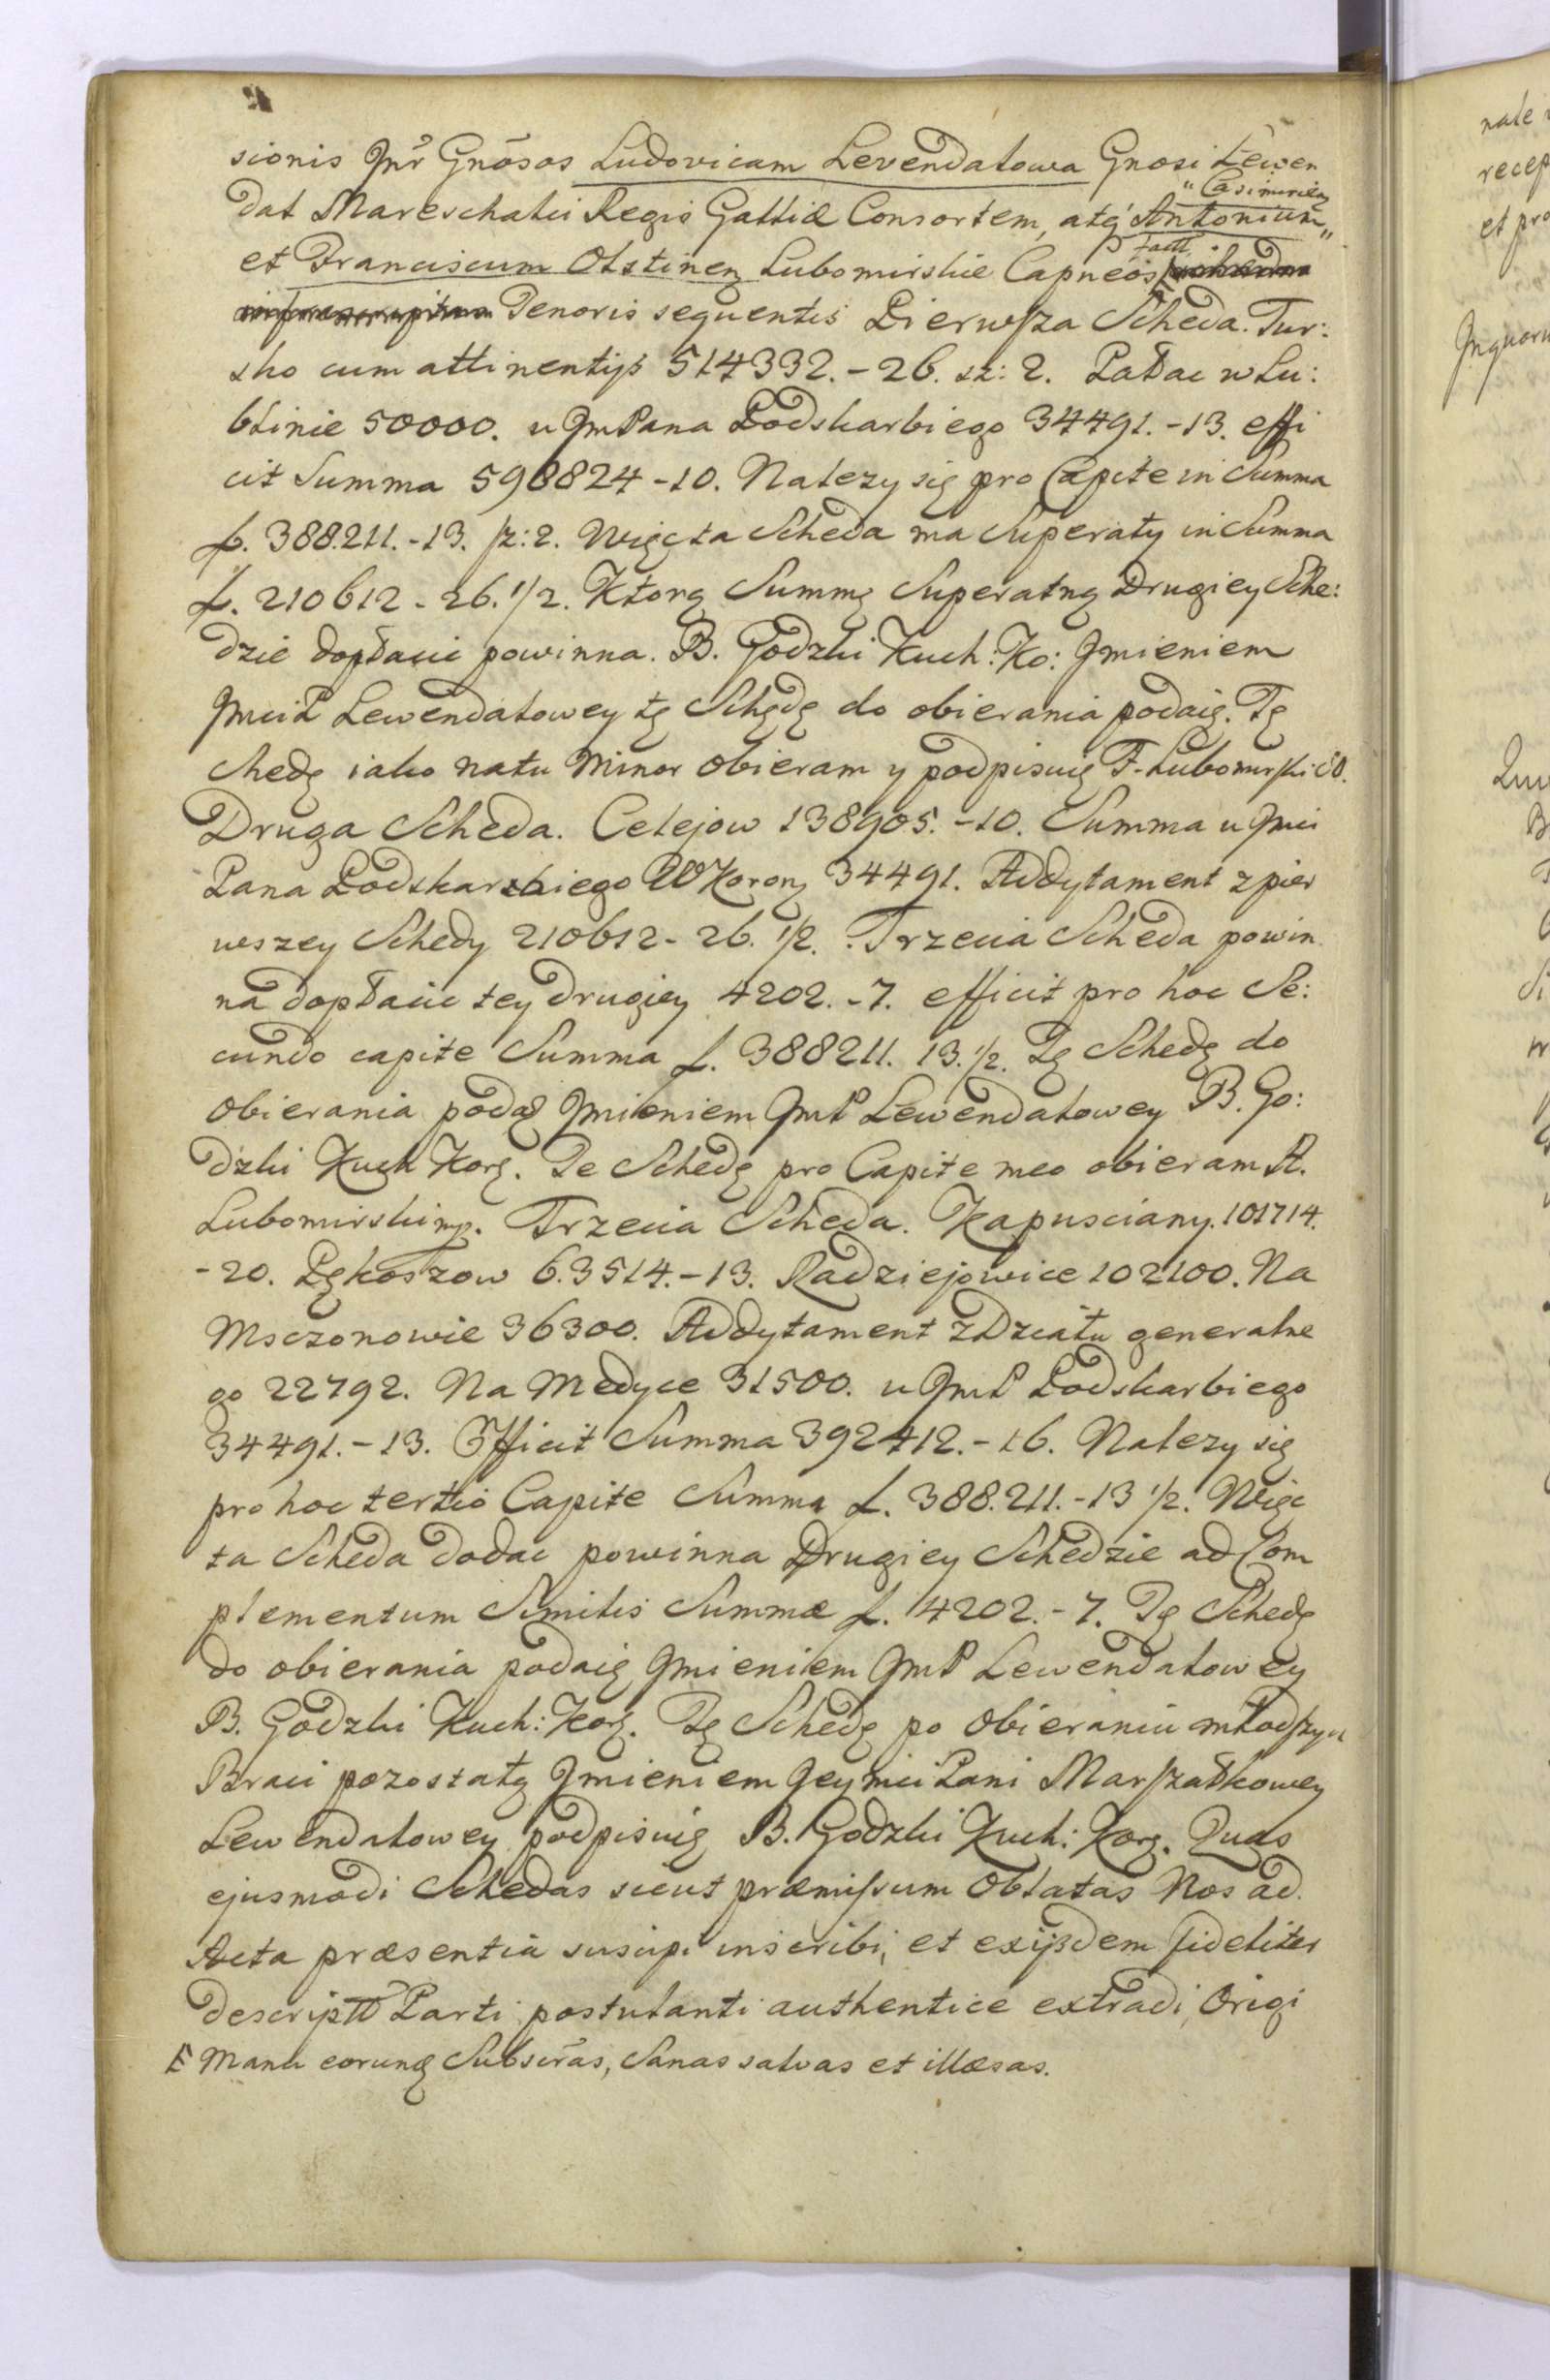 sionis Inr Gnosos Ludovicam Levendalowa Gnosi Lewen
dal Mareschalci Regis Galliæ Consortem, atq Antonium
"Casimirien"
et Franciscum Olstinen Lubomirskie Capneos
fact
Tenoris sequentis Pierwsza Scheda. Tur:
sko cum attinentijs 514332.-26. sz: 2. Pałac w Lu:
blinie 50000. u JmPana Podskarbiego 34491.-13. effi
cit Summa 598824-10. Nalezy się pro Capite in Summa
f. 388.211.-13. sz: 2. Więc ta Scheda ma Superaty in Summa
f. 210612-26. 1/2. Ktorą Summę Superatną Drugiey Sche:
dzie dopłacic powinna. B. Godzki Kuch: Ko: Imieniem
JmciP Lewendalowey tę Schędę do obierania podaię. Tę
chedę iako natu Minor obieram y podpisuię F. Lubomirski
Druga Scheda. Celejow 138905.-10. Summa u Jmci
Pana Podskarbiego W Korony 34491. Addytament z pier
wszey Schedy 210612-26. 1/2. Trzecia Scheda powin
na dopłacic tey drugiey 4202.-7. efficit pro hoc Se:
cundo capite Summa f. 388211. 13. 1/2. Tę Schedę do
obierania podaę Imieniem JmP Lewendalowey B. Go:
dzki Kuch Korę. Te Schedę pro Capite meo obieram A.
Lubomirski mp. Trzecia Scheda. Kapusciany. 101714.
-20. Pękoszow 6.3514.-13. Radziejowice 102100. Na
Msczonowie 36300. Addytament z Działu generalne
go 22792. Na Medyce 31500. u JmP Podskarbiego
34491.-13. Efficit Summa 392412.-16. Nalezy się
pro hoc tertio Capite Summa f. 388.211.-13 1/2. Więc
ta Scheda dodac powinna Drugiey Schedzie ad Com
plementum Similis Summæ f. 4202.-7. Tę Schedę
do obierania podaię Imieniem JmP Lewendalowey
B. Godzki Kuch: Korę. Tę Schedę po obieraniu młodszych
Braci pozostałą Imieniem Jeymci Pani Marszałkowey
Lewendalowey podpisuię B. Godzki Kuch: Korę. Quas
ejusmodi Schedas sicut præmissum oblatas Nos ad
Acta præsentia suscipi inscribi, et exijsdem fideliter
descriptt Parti postulanti authentice extradi, Origi
F Manu eorunq Subscras, Sanas salvas et illæsas.
nale
recep
et pro